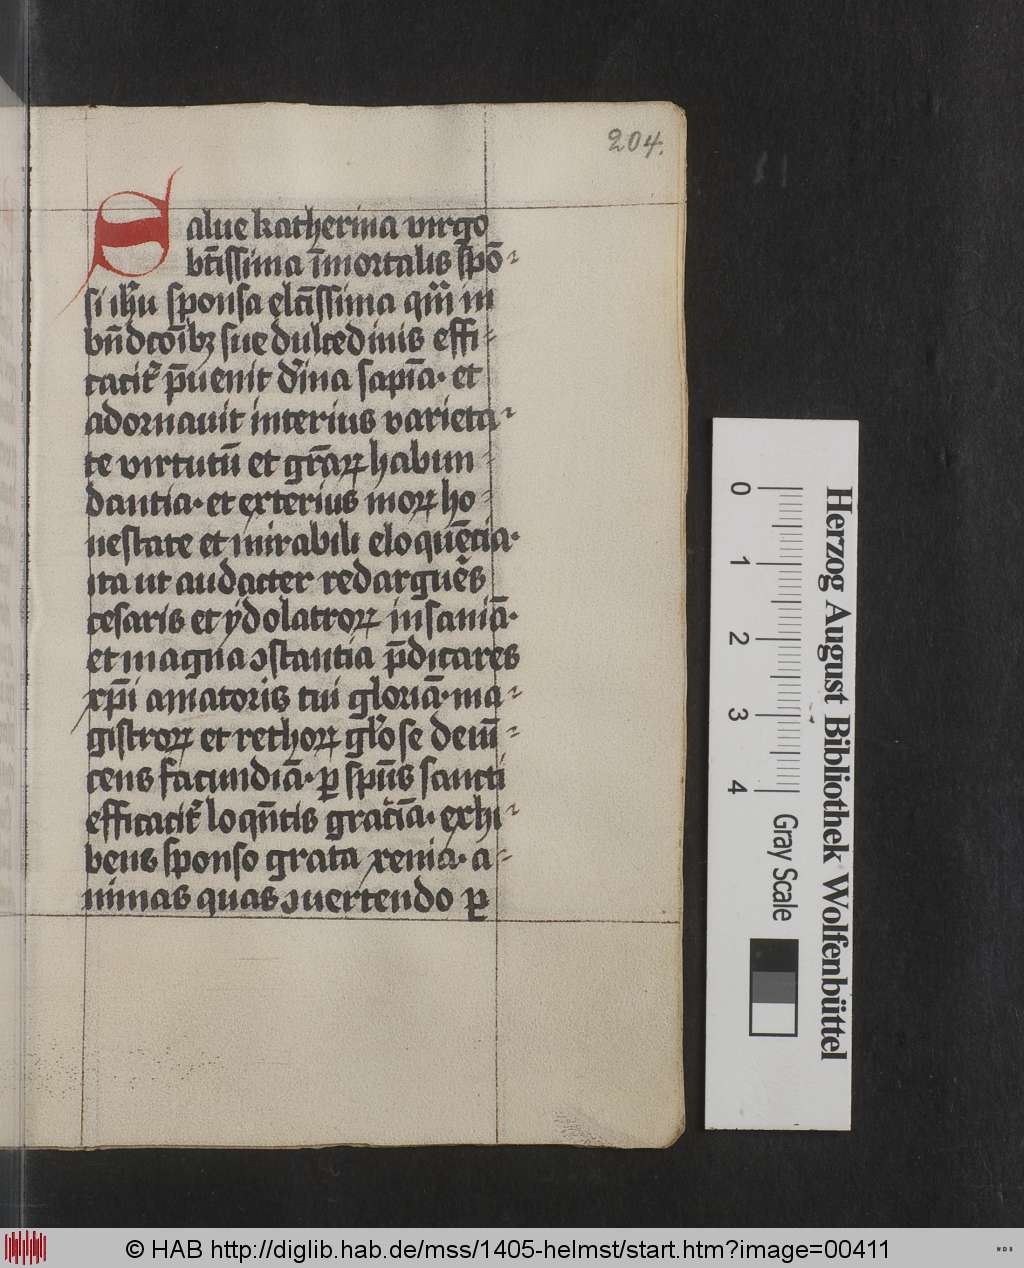 204.
Salue katherina virgo
bt̄issima īmortalis spō-
si ih̄u sponsa elc̄issima qm̄ in
bn̄dcōibꝫ sue dulcedinis effi-
cacit̓ p̄uenit dīna sapīa· et
adornauit interius varieta-
te virtutū et gr̄aꝝ habun-
dantia· et exterius moꝝ ho-
nestate et mirabili eloquēcia·
ita ut audacter redarguēs
cesaris et ydolatroꝝ insaniā·
et magna ꝯstantia p̄dicares
xp̄i amatoris tui gloriā· ma-
gistroꝝ et rethoꝝ gl̓ose deuī-
cens facundiā· ꝑ sp̄us sancti
efficacit̓ loqn̄tis gratīa· exhi-
bens sponso grata xenia· a-
nimas quas ꝯuertendo ꝑ
0
1
2
3
4
Gray Scale
Herzog August Bibliothek Wolfenbüttel
© HAB http://diglib.hab.de/mss/1405-helmst/start.htm?image=00411